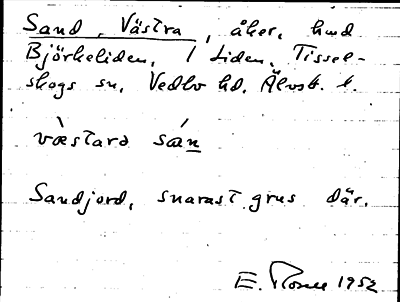 Sand, Västra, åker, hmd
Björkeliden, 1 Liden, Tissel-
skogs sn, Vedbo hd, Älvsb. l.
vàstarə sán
Sandjord, snarast grus där.
E. 1952